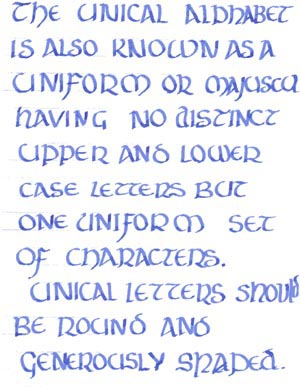 THE UNICAL ALPHABET
IS ALSO KNOWN AS A
UNIFORM OR MAJUSCU
HAVING NO DISTINCT
UPPER AND LOWER
CASE LETTERS BUT
ONE UNIFORM SET
OF CHARACTERS.
UNICAL LETTERS SHOULD
BE ROUND AND
GENEROUSLY SHAPED.